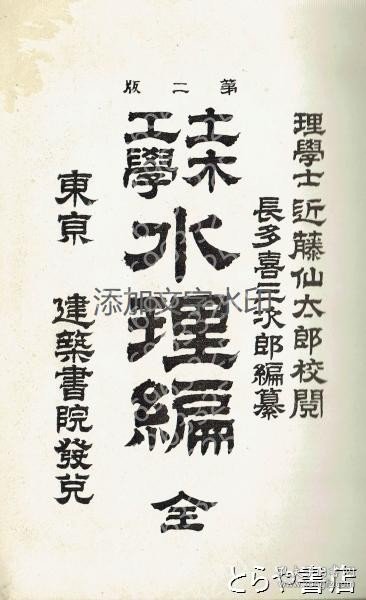 第二版
理學士近藤仙太郎校閲
長多喜三次郎編纂
土木
工學
水理編
全
東京
建築書院發兌
添加文字水印
とらや書店